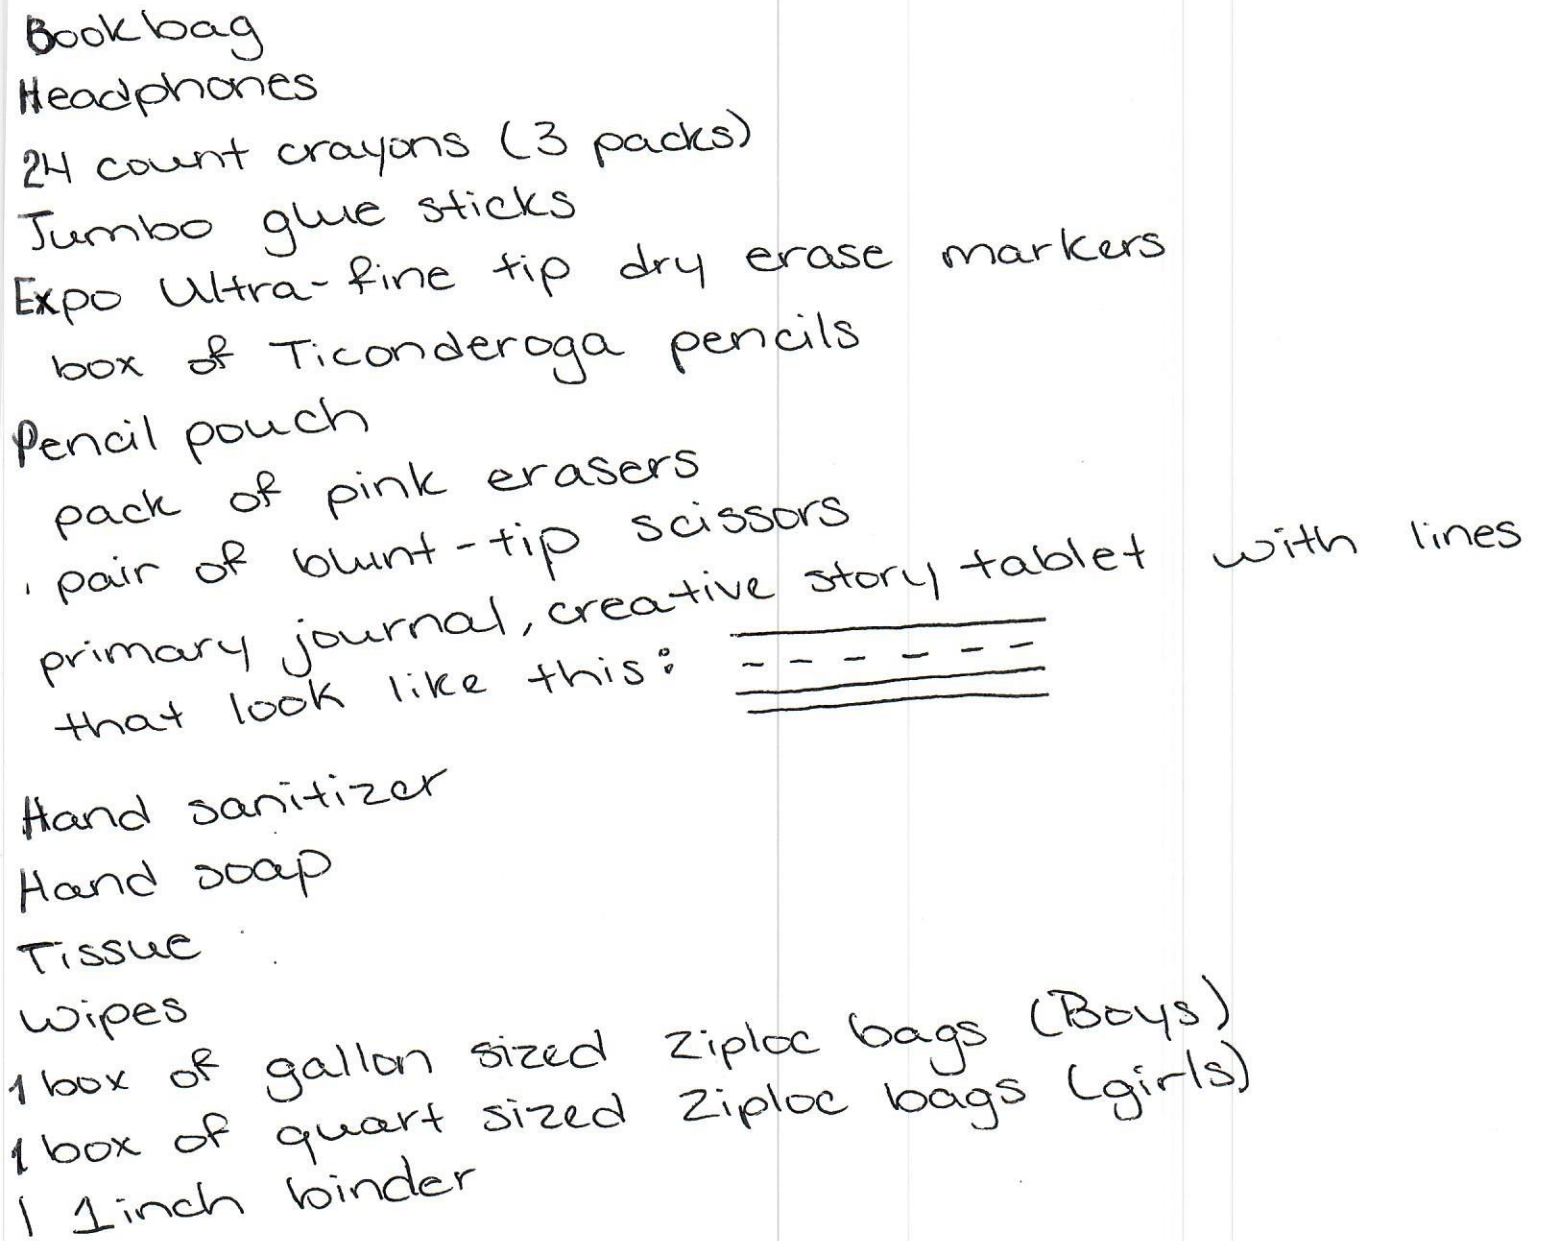 Bookbag
Headphones
24 count crayons (3 packs)
Jumbo glue sticks
Expo Ultra-fine tip dry erase markers
box of Ticonderoga pencils
Pencil pouch
pack of pink erasers
pair of blunt-tip scissors
primary journal, creative story tablet with lines
that look like this:
Hand sanitizer
Hand soap
Tissue
Wipes
1 box of gallon sized Ziploc bags (Boys)
1 box of quart sized Ziploc bags (girls)
1 1inch binder